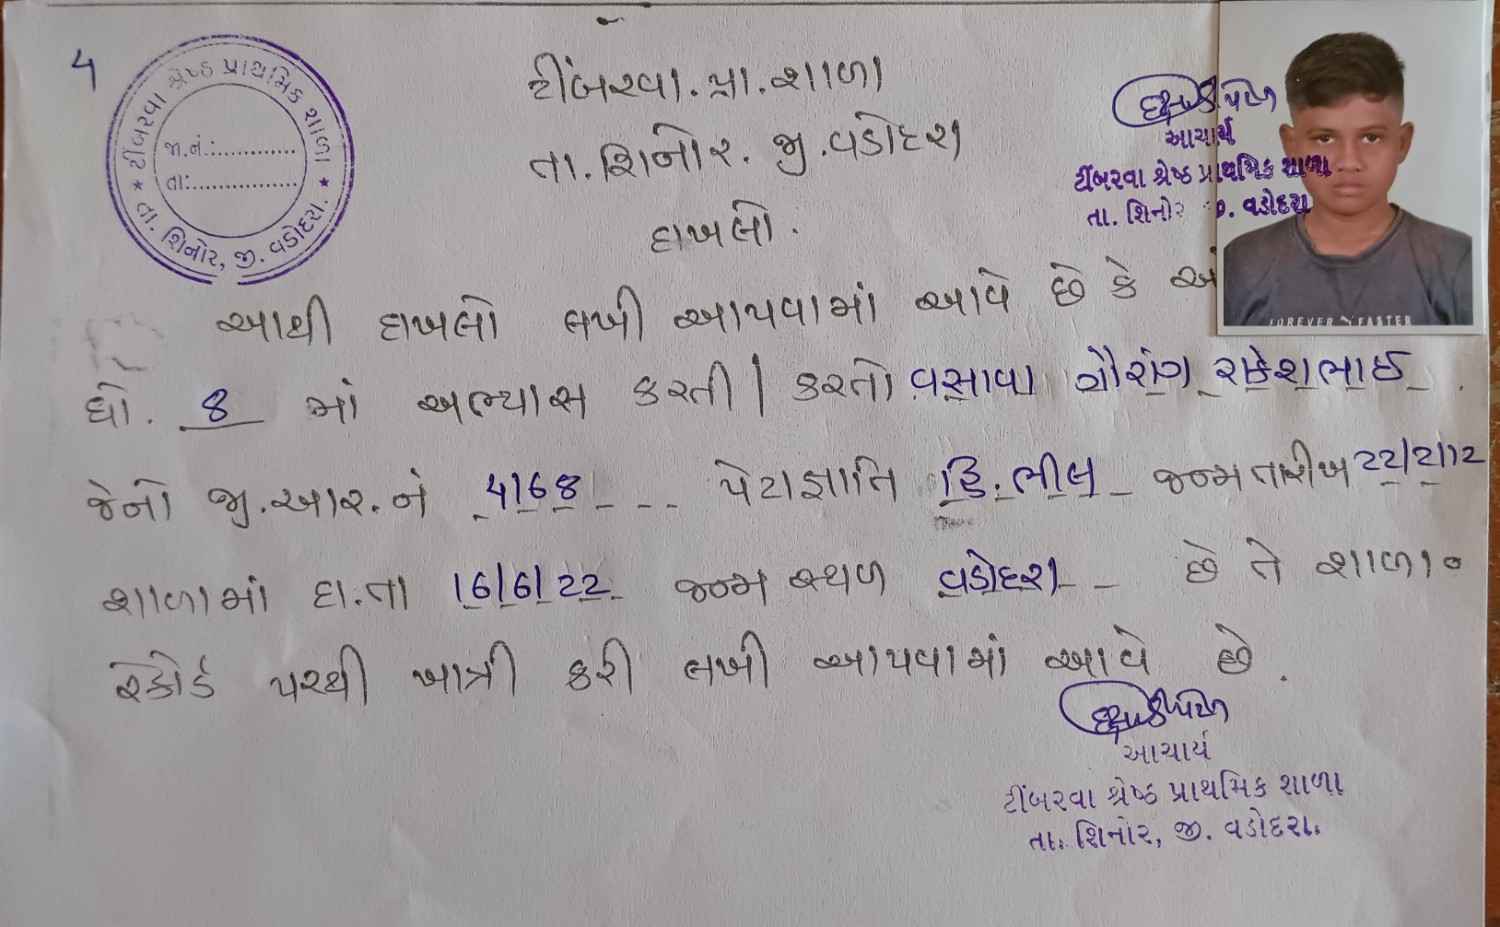 4
ટીંબરવા શ્રેષ્ઠ પ્રાથમિક શાળા
જા.નં.:
તા:
★ તા. શિનોર, જી. વડોદરા. ★
ટીંબરવા.પ્રા.શાળા
તા.શિનોર. જી.વડોદરા
દાખલો.
આચાર્ય
ટીંબરવા શ્રેષ્ઠ પ્રાથમિક શાળા
તા. શિનોર જી. વડોદરા
FOREVER FASTER
આથી દાખલો લખી આપવામાં આવે છે કે અં
ધો. 8 માં અભ્યાસ કરતી / કરતો વસાવા ગૌરાંગ રાકેશભાઈ.
જેનો જી.આર.નં 4168 પેટાજ્ઞાતિ હિ.ભીલ જન્મ તારીખ 22/2/12
શાળામાં દા.તા 16/6/22 જન્મ સ્થળ વડોદરા છે તે શાળા૦
રેકોર્ડ પરથી ખાત્રી કરી લખી આપવામાં આવે છે.
આચાર્ય
ટીંબરવા શ્રેષ્ઠ પ્રાથમિક શાળા
તા. શિનોર, જી. વડોદરા.